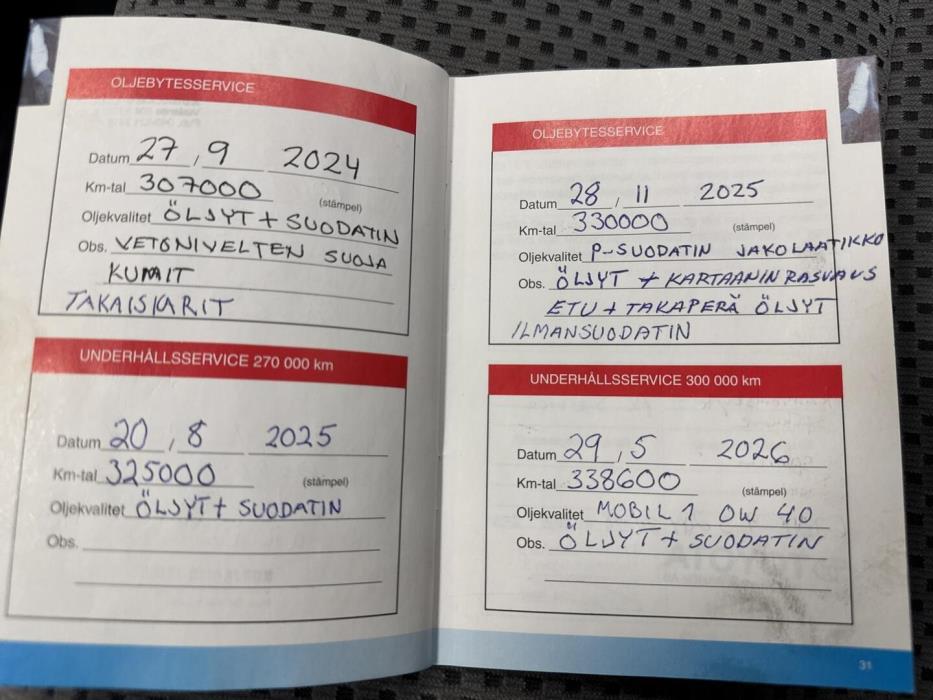 OLJEBYTESSERVICE
Datum 27 , 9 2024
Km-tal 307000
(stämpel)
Oljekvalitet ÖLJYT + SUODATIN
Obs. VETONIVELTEN SUOJA
KUMIT
TAKAISKARIT
UNDERHÅLLSSERVICE 270 000 km
Datum 20 , 8 2025
Km-tal 325000
(stämpel)
Oljekvalitet ÖLJYT + SUODATIN
Obs.
OLJEBYTESSERVICE
Datum 28 , 11 2025
Km-tal 330000
(stämpel)
Oljekvalitet P-SUODATIN JAKOLAATIKKO
Obs. ÖLJYT + KARTAANIN RASVAUS
ETU + TAKAPERÄ ÖLJYT
ILMANSUODATIN
UNDERHÅLLSSERVICE 300 000 km
Datum 29 , 5 2026
Km-tal 338600
(stämpel)
Oljekvalitet MOBIL 1 0W 40
Obs. ÖLJYT + SUODATIN
31